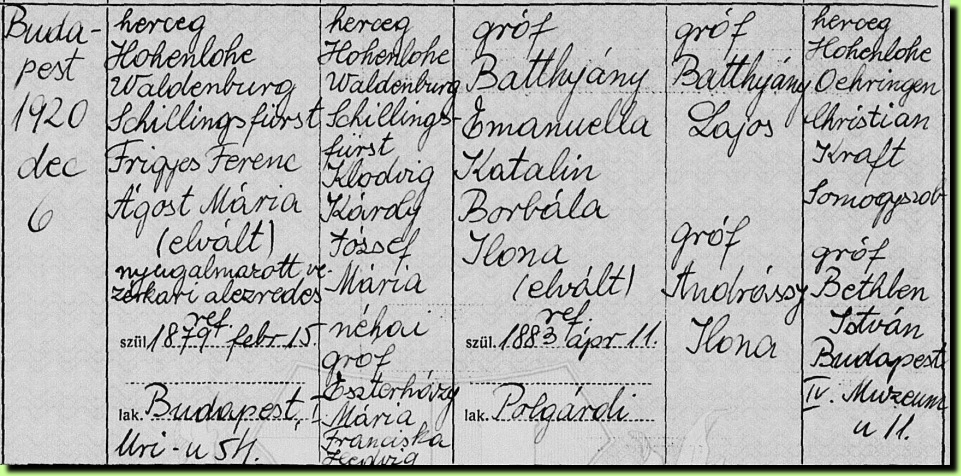 Buda-
pest
1920
dec
6
herceg
Hohenlohe
Waldenburg
Schillingsfürst
Frigyes Ferenc
Ágost Mária
(elvált)
nyugalmazott ve-
zérkari alezredes
ref.
szül. 1879 febr 15.
lak. Budapest, I
Uri-u 54.
herceg
Hohenlohe
Waldenburg
Schillings-
fürst
Klodvig
Károly
József
Mária
néhai
gróf
Eszterházy
Mária
Franciska
Hedvig
gróf
Batthyány
Emanuella
Katalin
Borbála
Ilona
(elvált)
ref.
szül. 1883 ápr 11.
lak. Polgárdi
gróf
Batthyány
Lajos
gróf
Andrássy
Ilona
herceg
Hohenlohe
Oehringen
Christian
Kraft
Somogyszob
gróf
Bethlen
István
Budapest
IV. Muzeum
u 11.